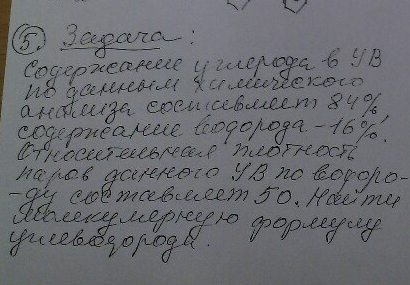 5. Задача:
Содержание углерода в УВ
по данным химического
анализа составляет 84%,
содержание водорода - 16%.
Относительная плотность
паров данного УВ по водоро-
-ду составляет 50. Найти
молекулярную формулу
углеводорода.